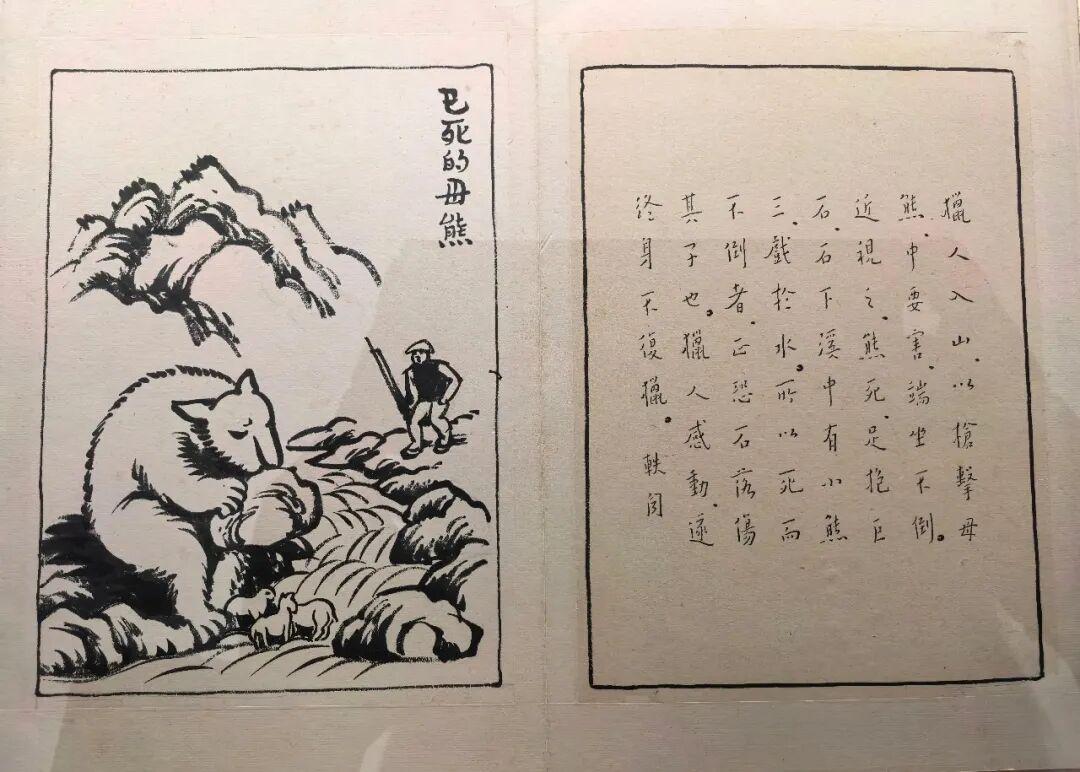 已死的母熊
獵人入山、以槍擊母
熊、中要害、端坐不倒。
近視之、熊死、足抱巨
石、石下溪中有小熊
三、戲於水。所以死而
不倒者、正恐石落傷
其子也。獵人感動、遂
終身不復獵。 軼闻